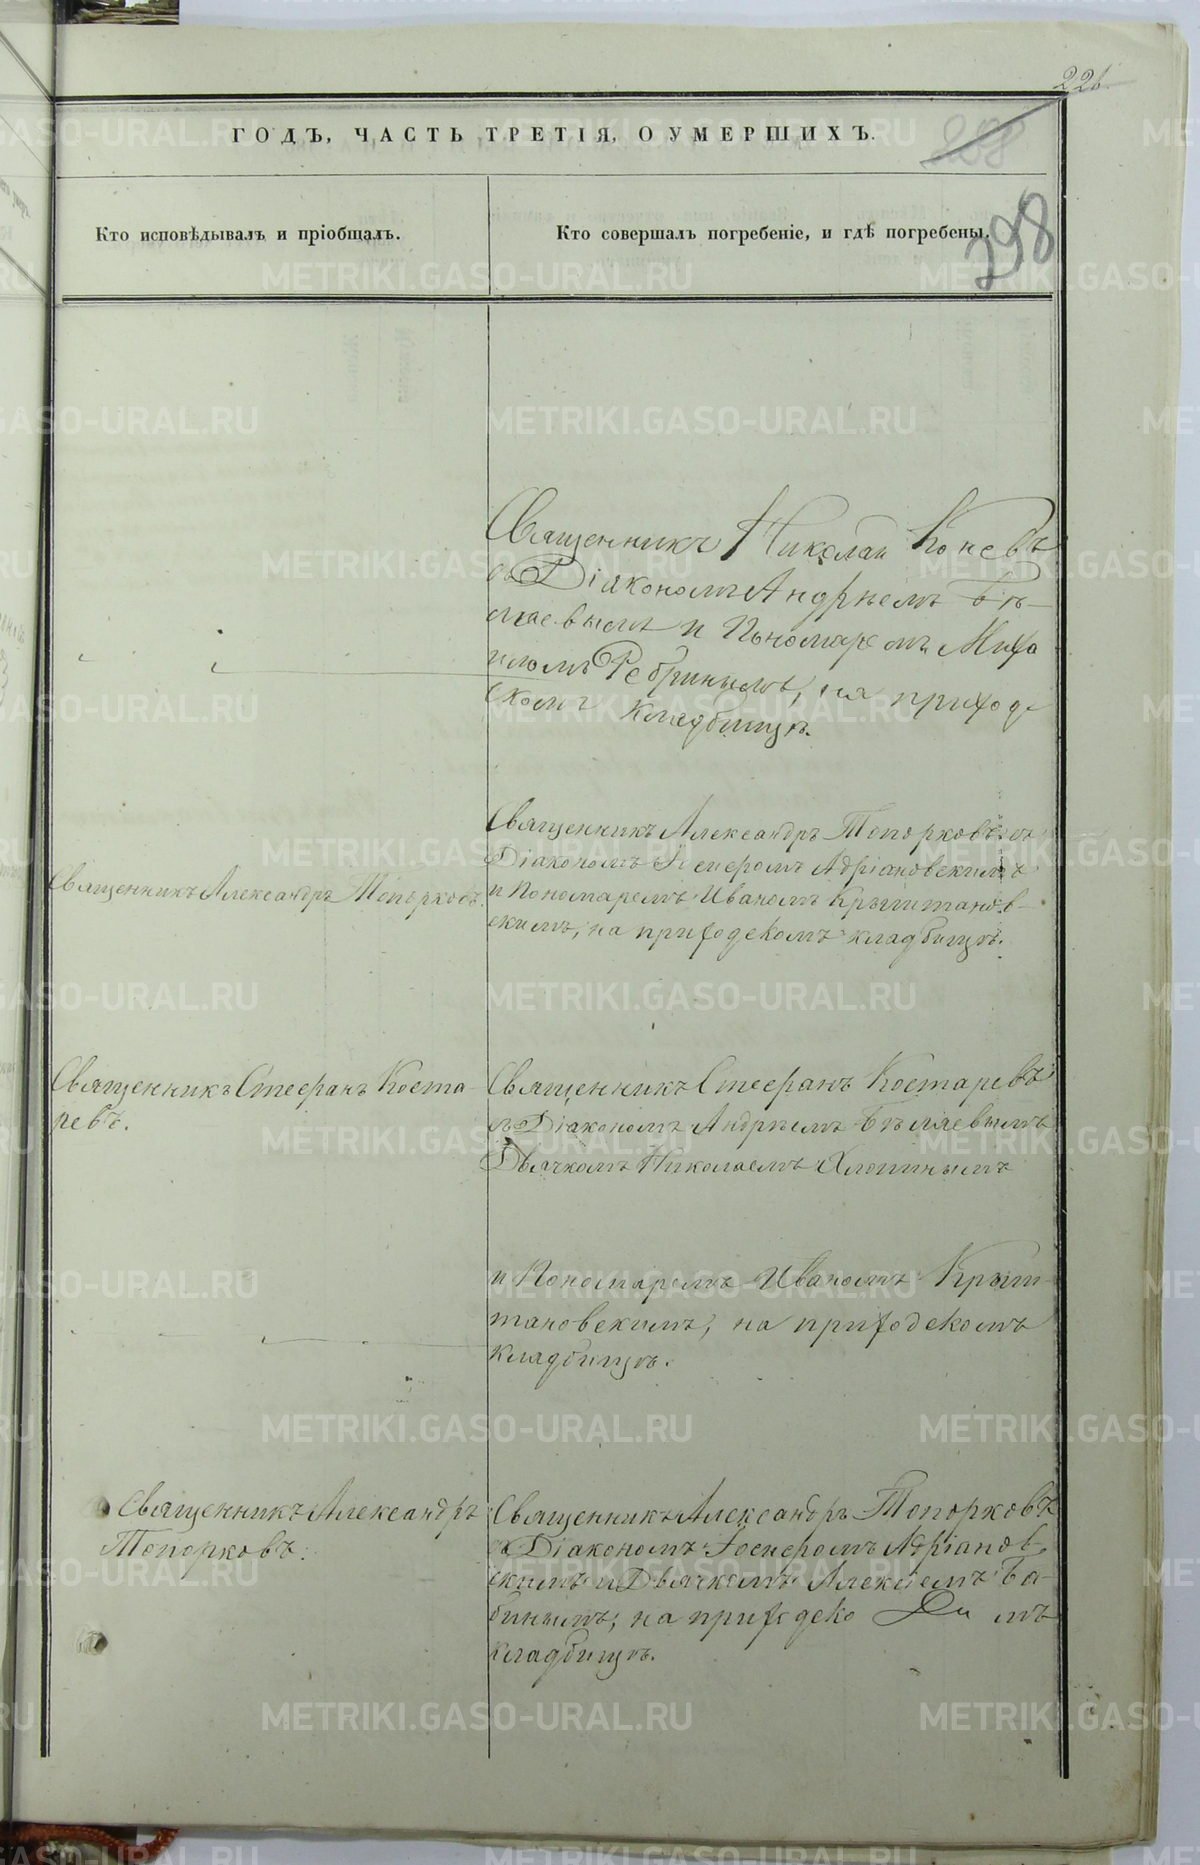 226.
ГОДЪ, ЧАСТЬ ТРЕТІЯ, О УМЕРШИХЪ.
298
Кто исповѣдывалъ и пріобщалъ.
Кто совершалъ погребеніе, и гдѣ погребены.
Священникъ Николай Коневъ
съ Діакономъ Андрѣемъ Бѣ-
ляевымъ и Пономаремъ Миха
иломъ Ребринымъ, на приход-
скомъ кладбищѣ.
Священникъ Александръ Топорковъ.
Священникъ Александръ Топорковъ съ
Діакономъ Адріановскимъ
и Пономаремъ Иваномъ Крыштанов-
скимъ, на приходскомъ кладбищѣ.
Священникъ Стефанъ Коста-
ревъ.
Священникъ Стефанъ Костаревъ
съ Діакономъ Андрѣемъ Бѣляевымъ
Дьячкомъ Николаемъ Хлопинымъ
и Пономаремъ Иваномъ Крыш-
тановскимъ, на приходскомъ
кладбищѣ.
Священникъ Александръ
Топорковъ.
Священникъ Александръ Топорковъ
съ Діакономъ Адріанов-
скимъ и Дьячкомъ Алексѣемъ Ба-
бинымъ, на приходско мъ
кладбищѣ.
METRIKI.GASO-URAL.RU